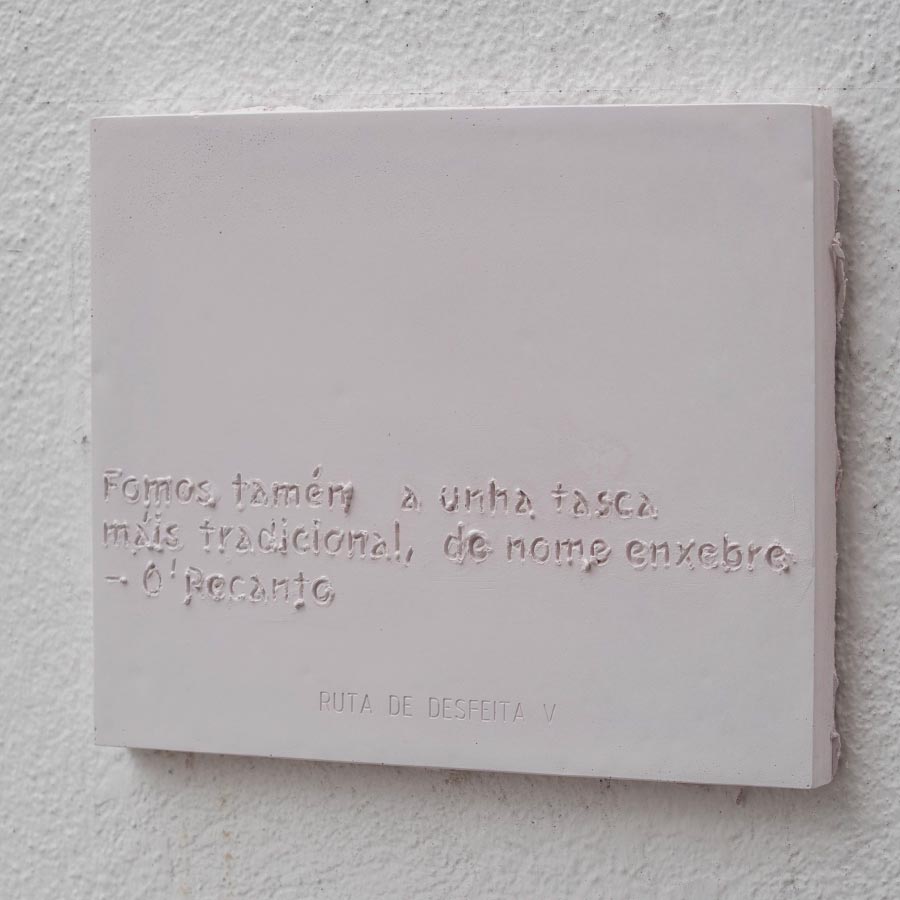 Fomos tamén a unha tasca
máis tradicional, de nome enxebre
- O'Recanto
RUTA DE DESFEITA V